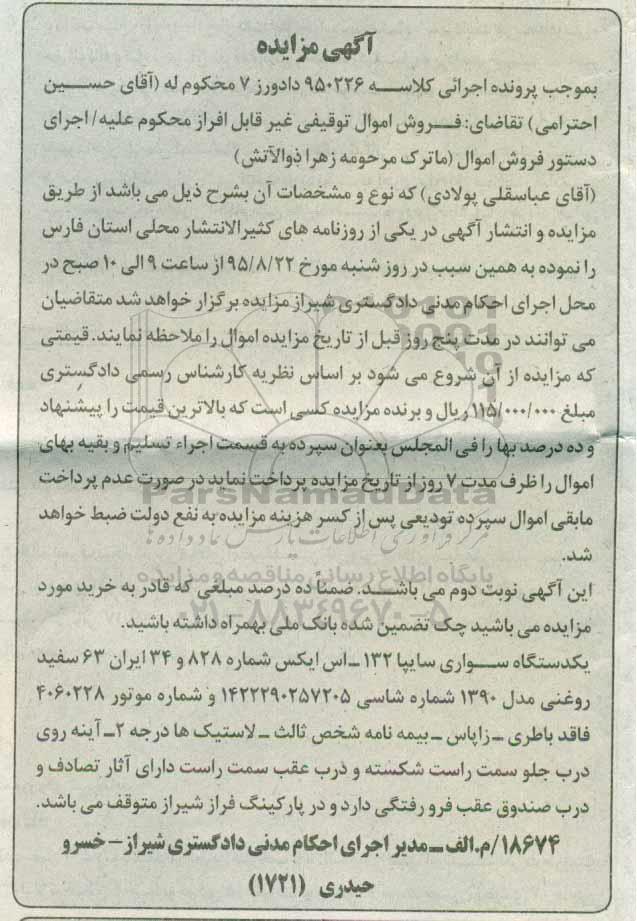 آگهی مزایده
بموجب پرونده اجرائی کلاسه ۹۵۰۲۲۶ دادورز ۷ محکوم له (آقای حسین
احترامی) تقاضای: فروش اموال توقیفی غیر قابل افراز محکوم علیه/ اجرای
دستور فروش اموال (ماترک مرحومه زهرا ذوالآتش)
(آقای عباسقلی پولادی) که نوع و مشخصات آن بشرح ذیل می باشد از طریق
مزایده و انتشار آگهی در یکی از روزنامه های کثیرالانتشار محلی استان فارس
را نموده به همین سبب در روز شنبه مورخ ۹۵/۸/۲۲ از ساعت ۹ الی ۱۰ صبح در
محل اجرای احکام مدنی دادگستری شیراز مزایده برگزار خواهد شد متقاضیان
می توانند در مدت پنج روز قبل از تاریخ مزایده اموال را ملاحظه نمایند. قیمتی
که مزایده از آن شروع می شود بر اساس نظریه کارشناس رسمی دادگستری
مبلغ ۱۱۵/۰۰۰/۰۰۰ ریال و برنده مزایده کسی است که بالاترین قیمت را پیشنهاد
و ده درصد بها را فی المجلس بعنوان سپرده به قسمت اجراء تسلیم و بقیه بهای
اموال را ظرف مدت ۷ روز از تاریخ مزایده پرداخت نماید در صورت عدم پرداخت
ParsNamadData
مابقی اموال سپرده تودیعی پس از کسر هزینه مزایده به نفع دولت ضبط خواهد
مرکز فرآوری اطلاعات پارس نماد داده ها
شد.
پایگاه اطلاع رسانی مناقصه و مزایده
این آگهی نوبت دوم می باشد. ضمناً ده درصد مبلغی که قادر به خرید مورد
۰۲۱-۸۸۳۴۹۶۷۰-۵
مزایده می باشید چک تضمین شده بانک ملی بهمراه داشته باشید.
یکدستگاه سواری سایپا ۱۳۲ ـ اس ایکس شماره ۸۲۸ و ۳۴ ایران ۶۳ سفید
روغنی مدل ۱۳۹۰ شماره شاسی ۱۴۲۲۲۹۰۲۵۷۲۰۵ و شماره موتور ۴۰۶۰۲۲۸
فاقد باطری ـ زاپاس ـ بیمه نامه شخص ثالث ـ لاستیک ها درجه ۲ـ آینه روی
درب جلو سمت راست شکسته و درب عقب سمت راست دارای آثار تصادف و
درب صندوق عقب فرو رفتگی دارد و در پارکینگ فراز شیراز متوقف می باشد.
۱۸۶۷۴/م.الف ـ مدیر اجرای احکام مدنی دادگستری شیراز – خسرو
حیدری (۱۷۲۱)